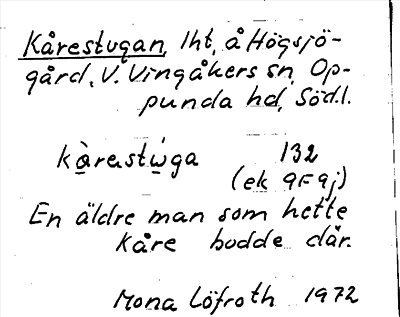 Kårestugan, lht, å Högsjö-
gård, V. Vingåkers sn, Op-
punda hd, Södl.
kà̱rastẁ̱ga 132
(ek 9F9j)
En äldre man som hette
Kåre bodde där.
Mona Löfroth 1972